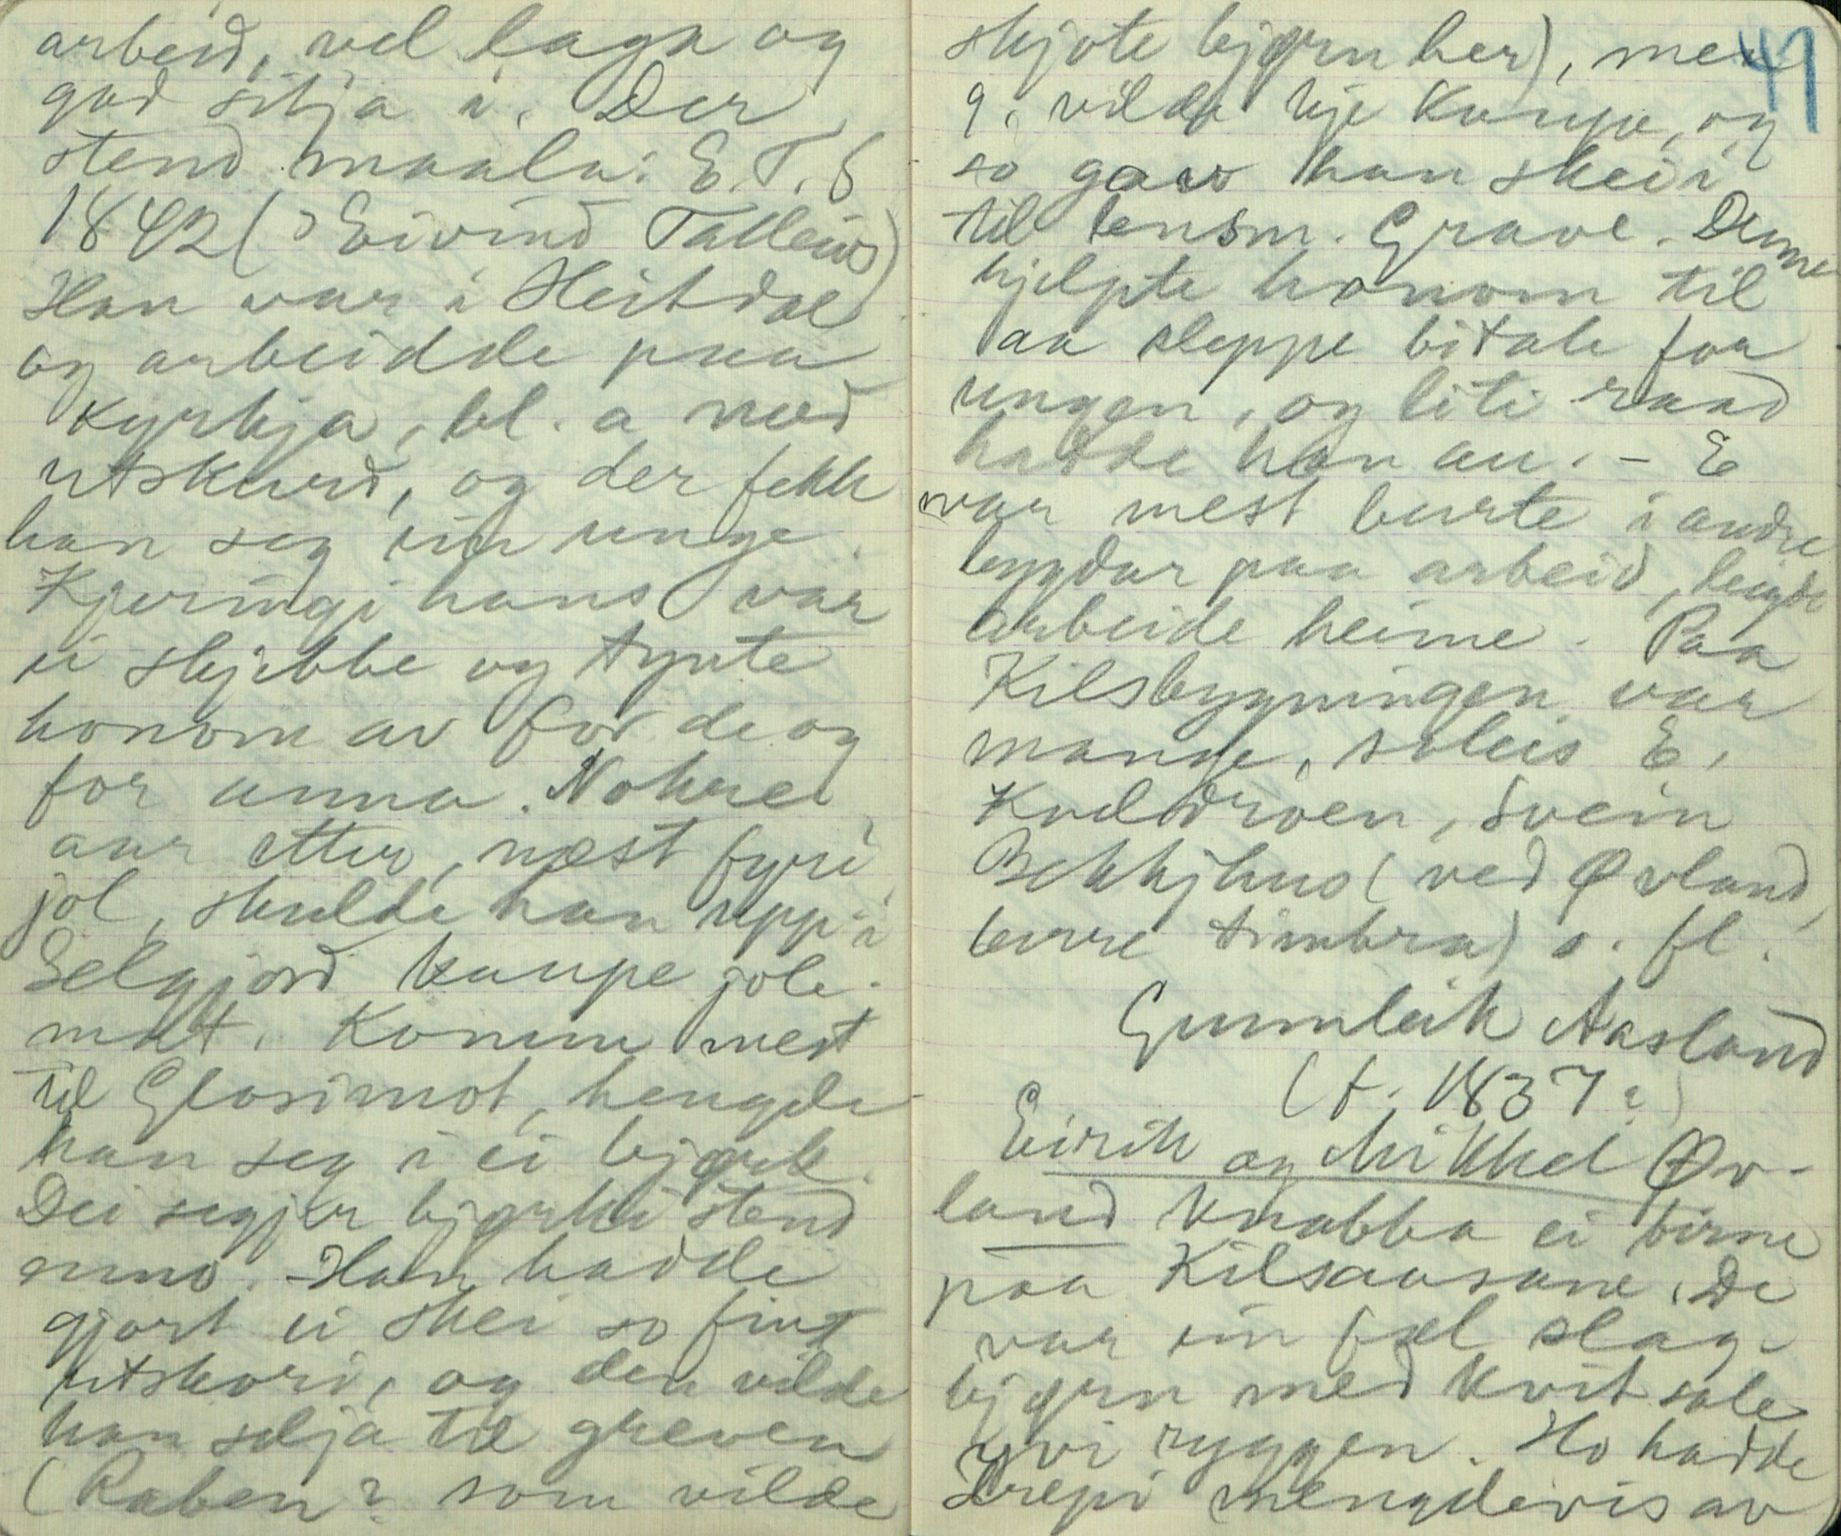 arbeid, vel laga og
god sitja i. Der
stend maala: E. T. S
1842 (? Eivind Talleivs)
Han var i Heitdal
og arbeidde paa
kyrkja, bl. a med
utskurd, og der fekk
han seg ein unge.
Kjeringi hans var
ei skjebbe og tynte
honom av for de og
for anna. Nokre
aar etter, næst fyri
jol, skulde han upp i
Selgjord kaupe jole-
mat. Komm mest
til Glosimot, hengde
han seg i ei bjørk.
Dei segjer bjørki stend
enno. Han hadde
gjort ei skei so fint
utskori, og den vilde
han selja til greven
(Raben? som vilde
skjote bjørn her), men
g. vilde kje kaupe, og
so gav han skei i
til lensm. Grave. Denne
hjelpte honom til
aa sleppe bitale for
ungen, og liti raad
hadde han au. - E
var mest burte i andre
bygdar paa arbeid, leigde
arbeide heime. Paa
Kilsbygningen var
mange, soleis E.
Svein
Bekkjhus (ved Øvland,
berre timbra) o. fl.
Gunnleik Aasland
(f. 1837?)
Eirik og Mikkel Øv-
land knabba ei binne
paa Kilsaasane. De
var ein fæl slag-
bjørn med kvit sale
yvi ryggen. Ho hadde
drepi mengdevis av
41